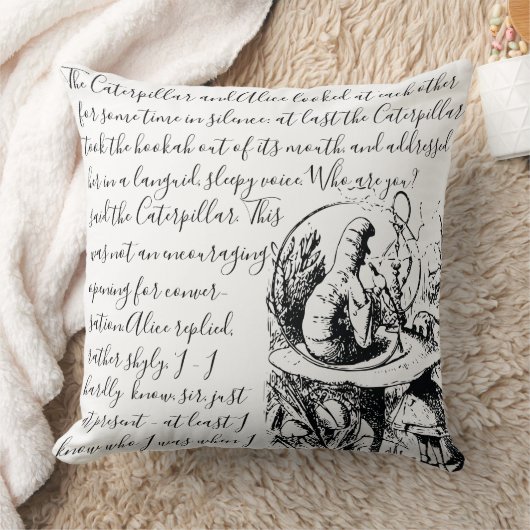 The Caterpillar and Alice looked at each other
for some time in silence: at last the Caterpillar
took the hookah out of its mouth, and addressed
her in a languid, sleepy voice. Who are you?
said the Caterpillar. This
was not an encouraging
opening for conver-
sation. Alice replied,
rather shyly, I - I
hardly know, sir, just
at present - at least I
know who I was when I